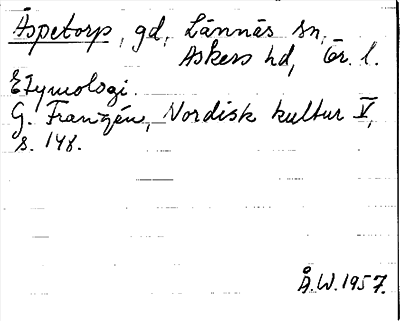 Äspetorp, gd, Lännäs sn,
Askers hd, Ör. l.
Etymologi.
G. Franzén, Nordisk kultur V,
s. 148.
Å.W. 1957.